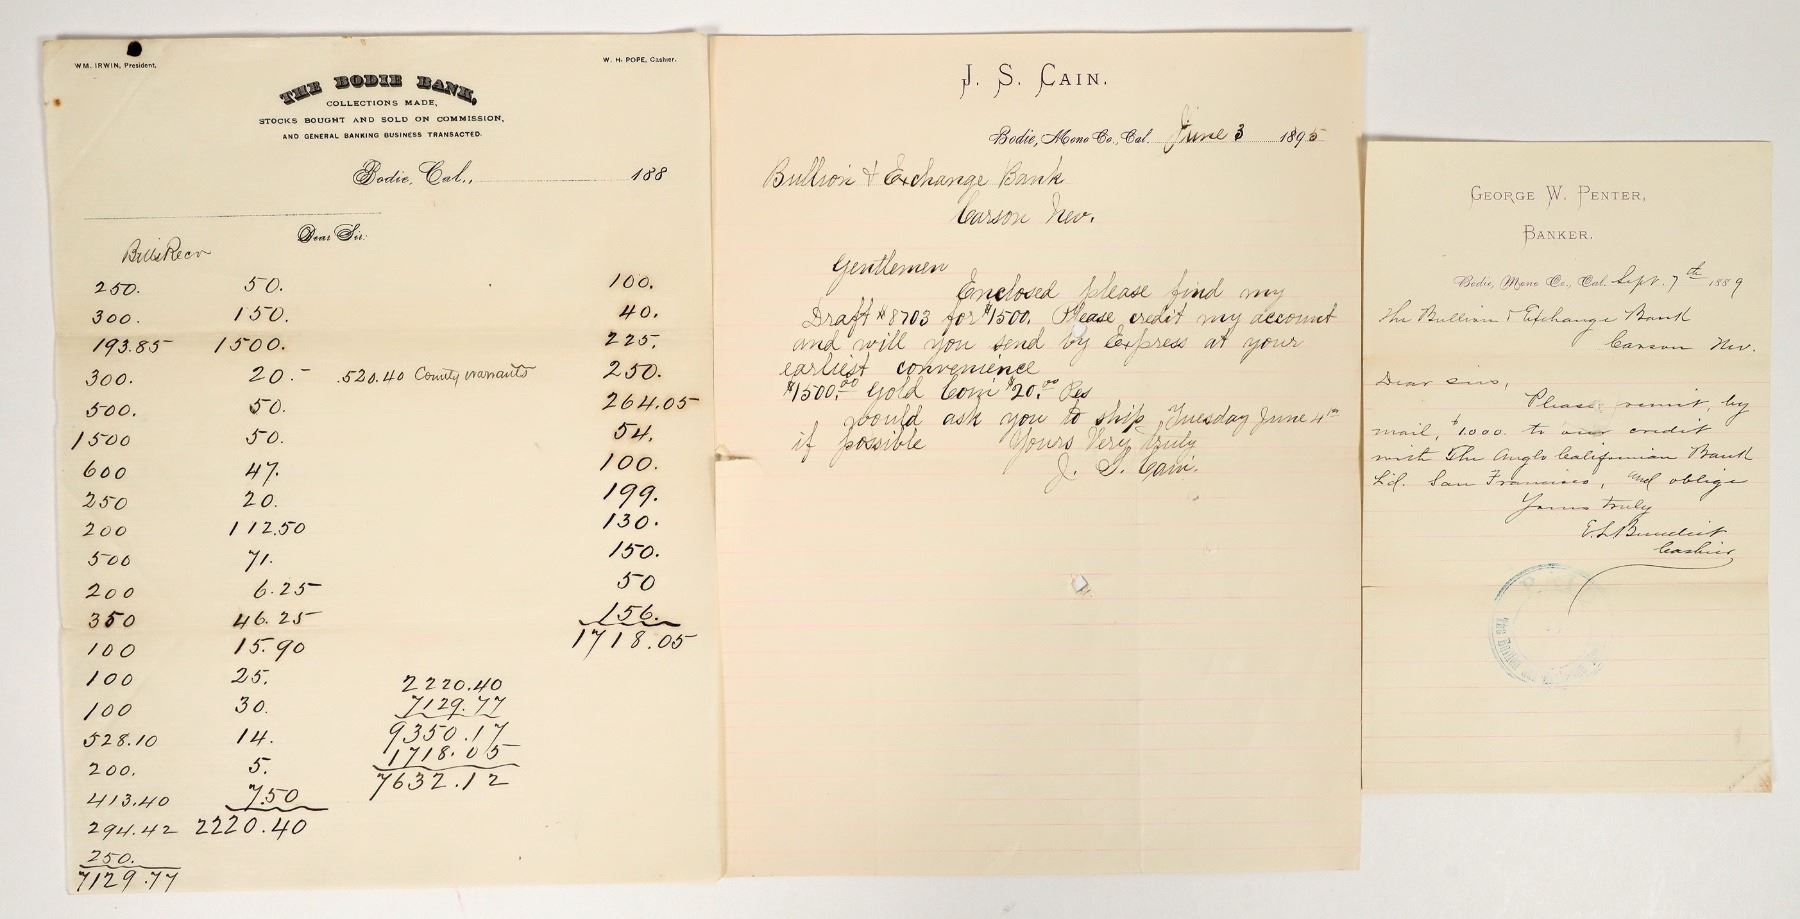 WM. IRWIN, President.
W. H. POPE, Cashier.
THE BODIE BANK,
COLLECTIONS MADE,
STOCKS BOUGHT AND SOLD ON COMMISSION,
AND GENERAL BANKING BUSINESS TRANSACTED.
Bodie, Cal., 188
Dear Sir:
Bills Recv
250. 50. 100.
300. 150. 40.
193.85 1500. 225.
300. 20.- 520.40 County warrants 250.
500. 50. 264.05
1500 50. 54.
600 47. 100.
250 20. 199.
200 112.50 130.
500 71. 150.
200 6.25 50
350 46.25 156.
100 15.90 1718.05
100 25. 2220.40
100 30. 7129.77
528.10 14. 9350.17
200. 5. 1718.05
413.40 7.50 7632.12
294.42 2220.40
250.
7129.77
J. S. CAIN.
Bodie, Mono Co., Cal. June 3 1895
Bullion & Exchange Bank
Carson Nev.
Gentlemen
Enclosed please find my
Draft #8703 for $1500. Please credit my account
and will you send by Express at your
earliest convenience
$1500.00 Gold Coin $20.00 Pcs
would ask you to ship Tuesday June 4th
if possible Yours Very truly
J. S. Cain.
GEORGE W. PENTER,
BANKER.
Bodie, Mono Co., Cal. Sept. 7th 1889
The Bullion & Exchange Bank
Carson Nev.
Dear Sirs,
Please remit, by
mail, $1000. to our credit
with The Anglo Californian Bank
Ld. San Francisco, and oblige
Yours truly
E. L. Benedict
Cashier